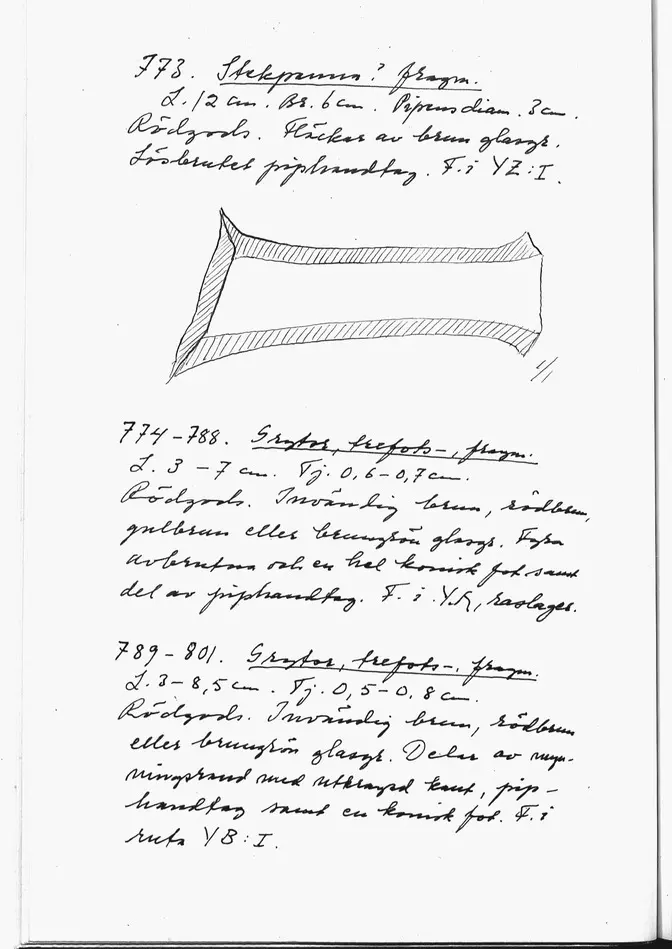 773. Stekpanna? fragm.
L. 12 cm. Br. 6 cm. Pipens diam. 3 cm.
Rödgods. Fläckar av brun glasyr.
Lösbrutet piphandtag. F. i YZ:I.
1/1
774-788. Grytor, trefots-, fragm.
L. 3 - 7 cm. Tj. 0,6-0,7 cm.
Rödgods. Invändig brun, rödbrun,
gulbrun eller brungrön glasyr. Fyra
avbrutna och en hel konisk fot samt
del av piphandtag. F. i raslager.
789-801. Grytor, trefots-, fragm.
L. 3-8,5 cm. Tj. 0,5-0,8 cm.
Rödgods. Invändig brun, rödbrun
eller brungrön glasyr. Delar av myn-
ningsrand med utkragad kant, pip-
handtag samt en konisk fot. F. i
ruta YB:I.